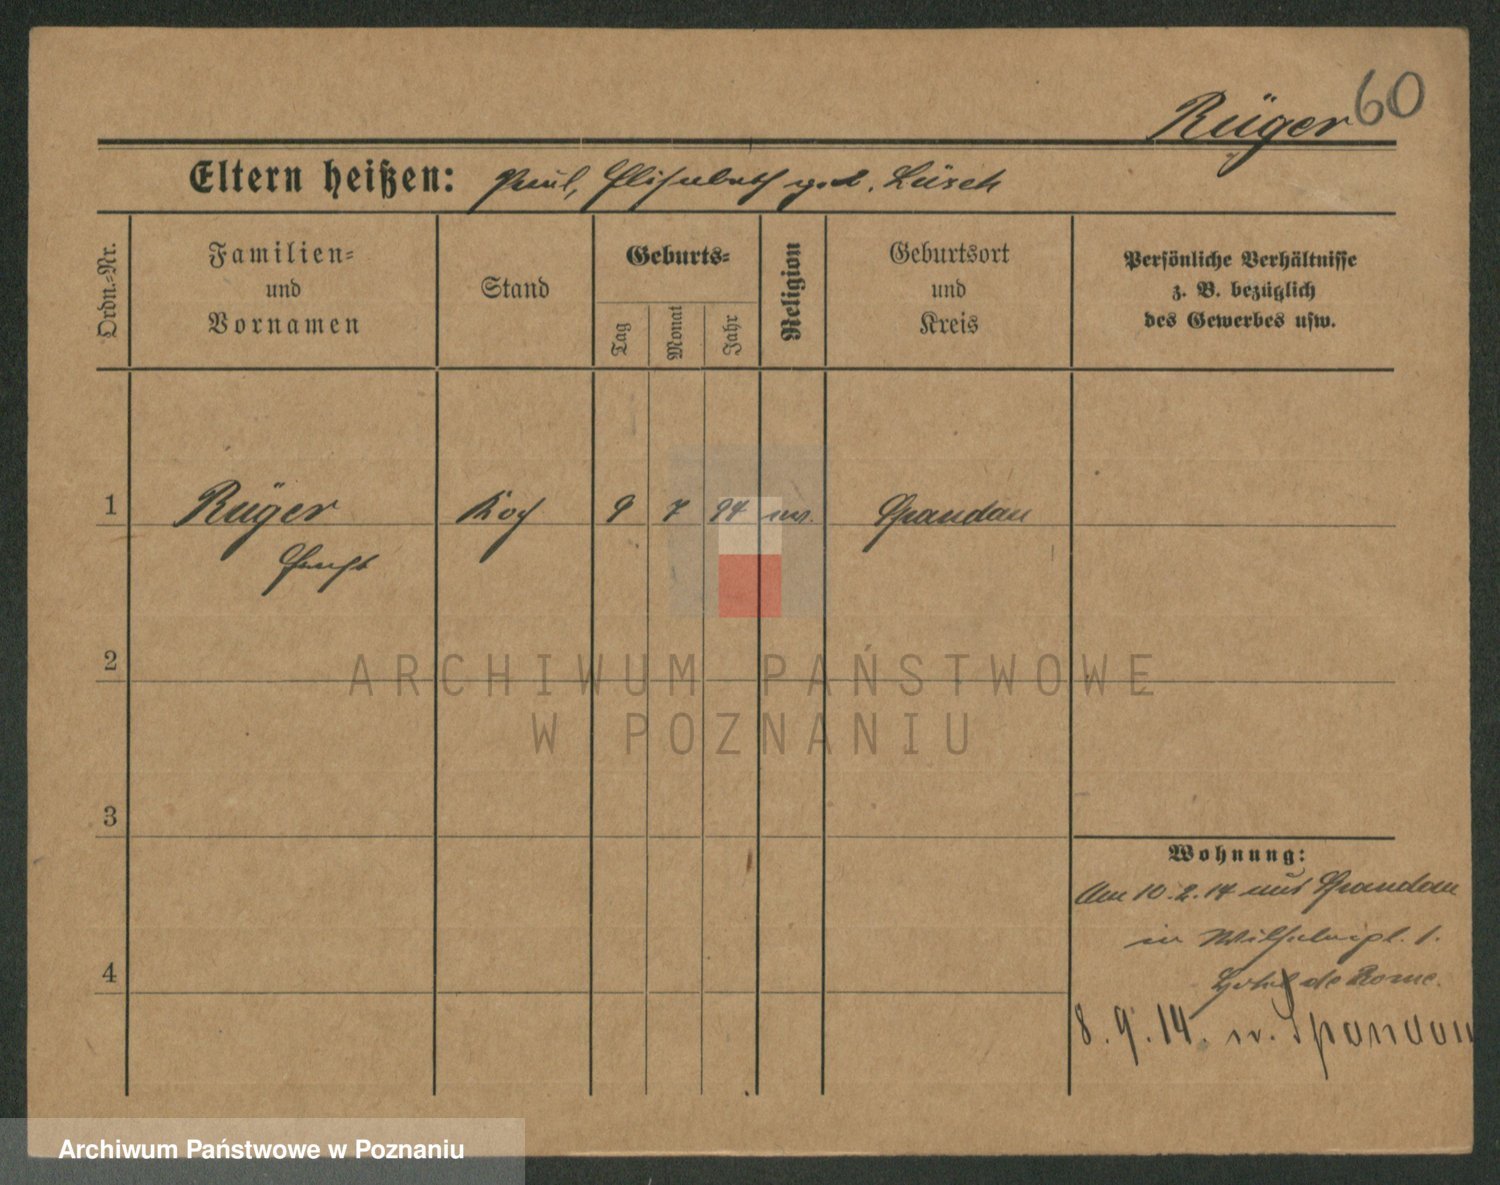 60
Rüger
Eltern heißen: Paul, Elisabeth geb. Lüsch
Ordn.-Nr.
Familien-
und
Vornamen
Stand
Geburts-
Tag
Monat
Jahr
Religion
Geburtsort
und
Kreis
Persönliche Verhältnisse
z. B. bezüglich
des Gewerbes usw.
1 Rüger Koch 9 7 94 ev. Spandau
Ernst
2
3
4
Wohnung:
Am 10.2.14 aus Spandau
in Wilhelmpl. 1.
Hotel de Rome.
8.9.14. n. Spandau
ARCHIWUM PAŃSTWOWE
W POZNANIU
Archiwum Państwowe w Poznaniu